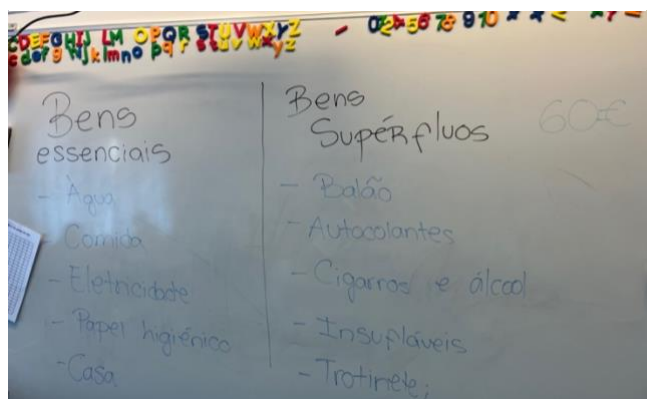 CDEFGHIJ LM OPQR STUVWXYZ
cdefg hijklmno pqr stuvwxyz
Bens
essenciais
- Água
- Comida
- Eletricidade
- Papel higiénico
- Casa
Bens
Supérfluos
- Balão
- Autocolantes
- Cigarros e álcool
- Insufláveis
- Trotinete;
60€